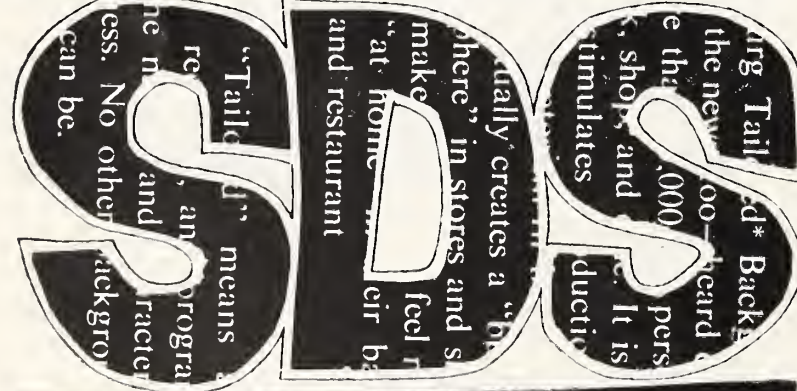 SDS
urg Tail ed* Backg
the new oo—heard
e tha ,000 pers
k, shop, and e. It is
stimulates ductio
ually creates a “b
here” in stores and s
make feel r
“at home eir ba
and restaurant
“Tailo d” means
re , an rogra
he n and racter
ess. No other ackgro
can be.